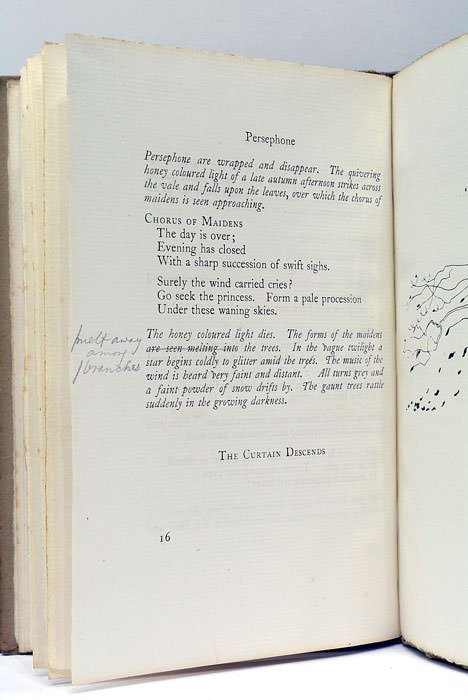 Persephone
Persephone are wrapped and disappear. The quivering
honey coloured light of a late autumn afternoon strikes across
the vale and falls upon the leaves, over which the chorus of
maidens is seen approaching.
Chorus of Maidens
The day is over;
Evening has closed
With a sharp succession of swift sighs.
Surely the wind carried cries?
Go seek the princess. Form a pale procession
Under these waning skies.
The honey coloured light dies. The forms of the maidens
are seen melting into the trees. In the vague twilight a
star begins coldly to glitter amid the trees. The music of the
wind is heard very faint and distant. All turns grey and
a faint powder of snow drifts by. The gaunt trees rattle
suddenly in the growing darkness.
melt away
among
branches
The Curtain Descends
16